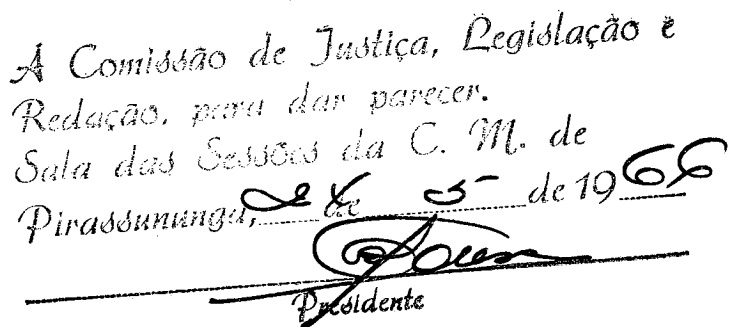 A Comissão de Justiça, Legislação e
Redação, para dar parecer.
Sala das Sessões da C. M. de
Pirassununga, 24 de 5 de 1966
Presidente